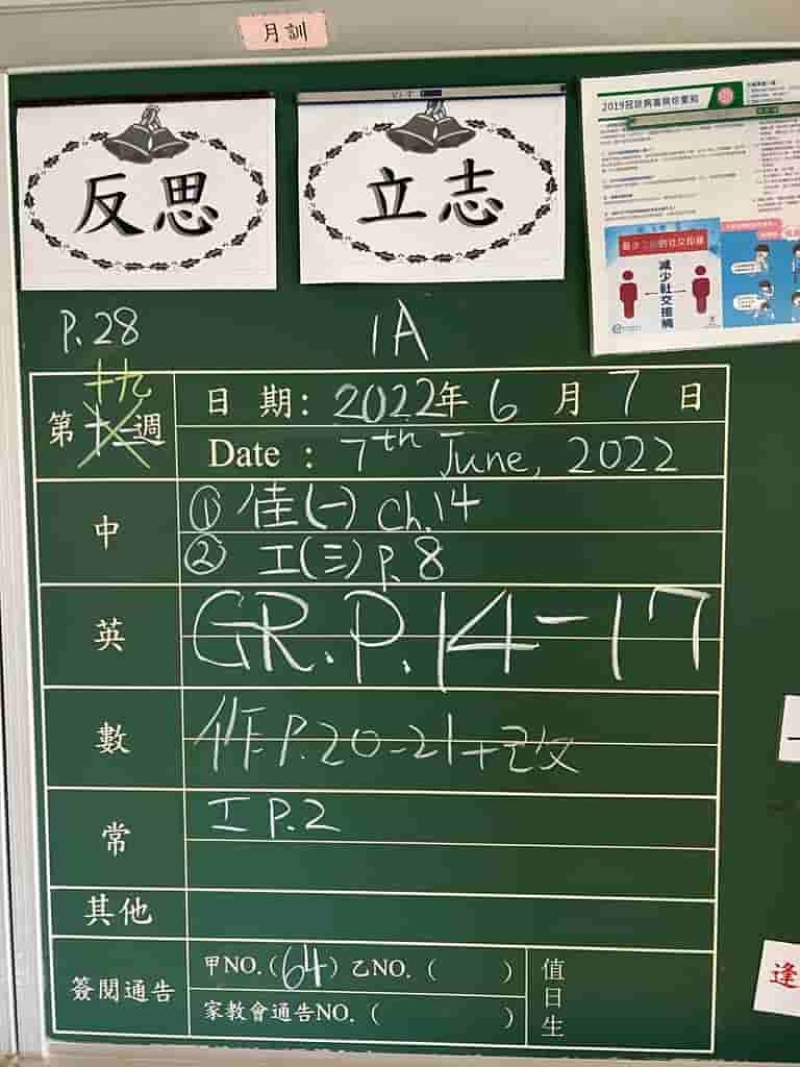 月訓
反思
立志
2019冠狀病毒病你要知
減少社交接觸
P.28
1A
十九
第十二週
日 期: 2022年 6 月 7 日
Date : 7th June, 2022
中
① 佳(一) Ch.14
② 工(三) P.8
英
GR.P.14-17
數
作P.20-21+改
常
工 P.2
其他
簽閱通告
甲NO.(64) 乙NO. ( )
家教會通告NO. ( )
值日生
逢